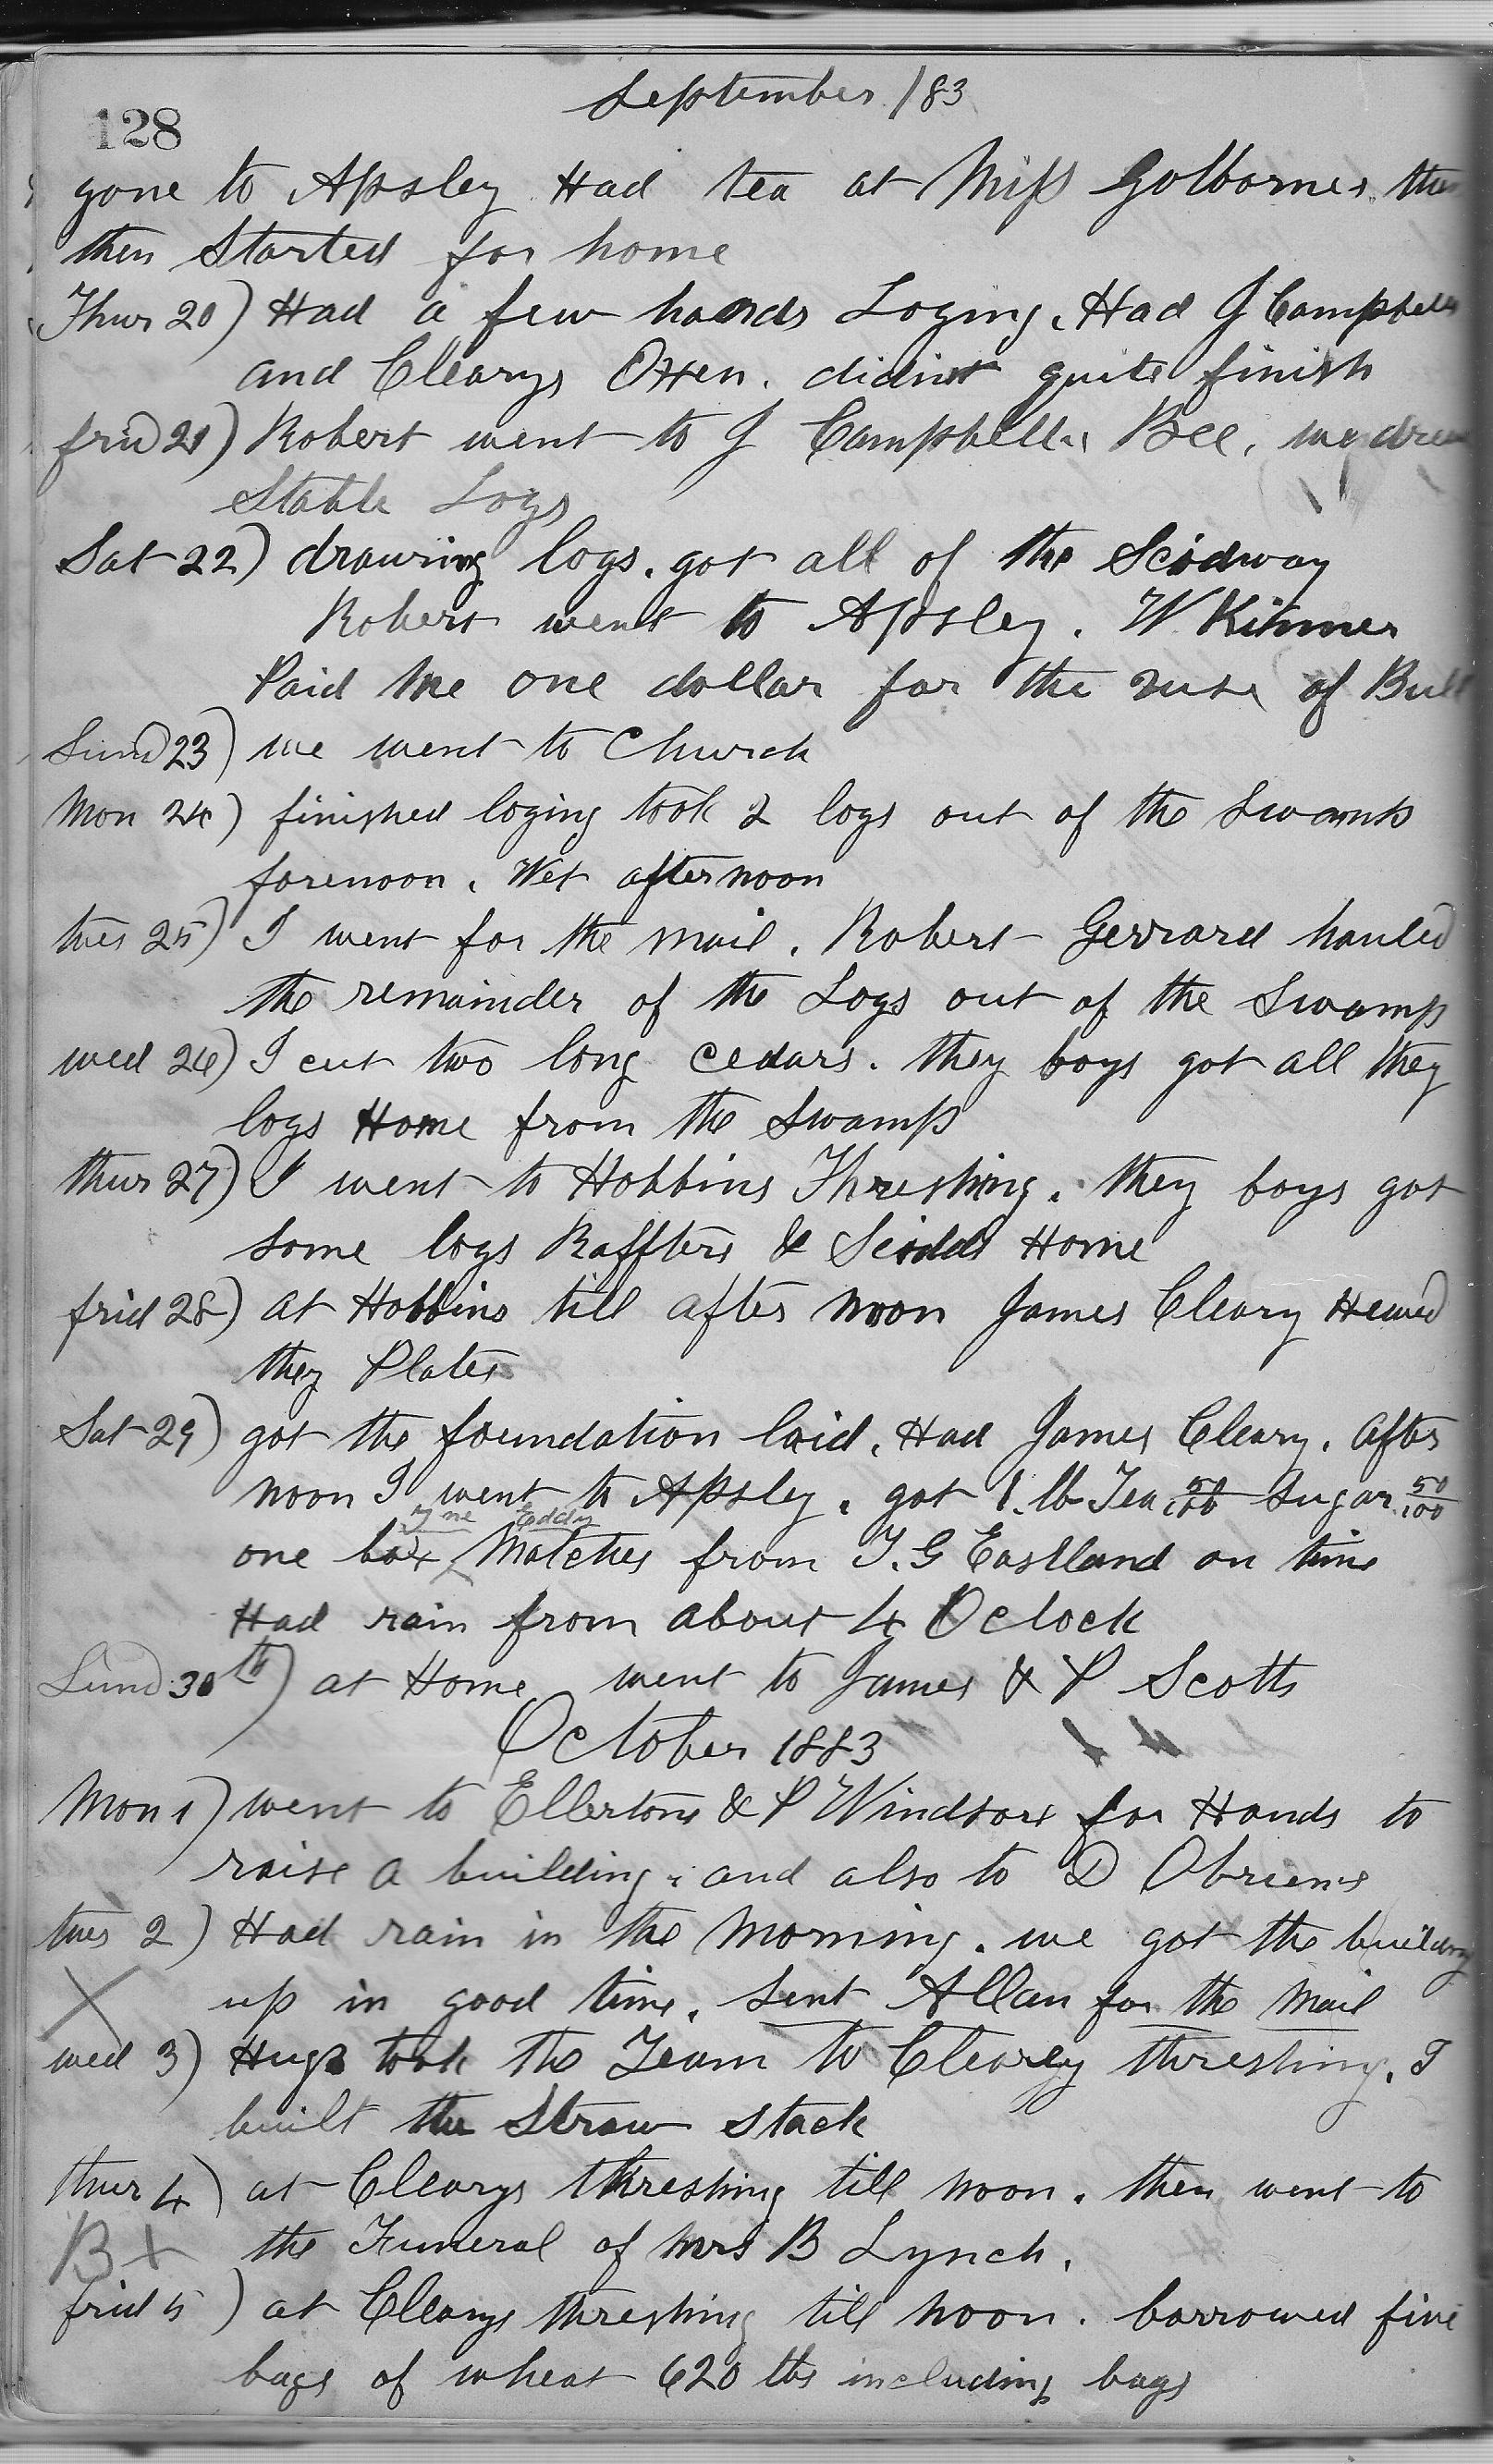 September /83
128
gone to Apsley Had tea at Miss Golbornes
then Started for home
Thur 20) Had a few hands Loging. Had J Campbells
and Clearys Oxen. didint quite finish
frid 21) Robert went to J Campbells Bee. we drew
Stable Logs
Sat 22) drawing logs. got all of the Scidway
Robert went to Apsley. W Kitmer
Paid me one dollar for the use of Bull
Sund 23) we went to Church
Mon 24) finished loging took 2 logs out of the Swamp
forenoon. Wet afternoon
tues 25) I went for the mail. Robert Gerrard hauled
the remainder of the Logs out of the Swamp
wed 26) I cut two long cedars. they boys got all they
logs Home from the Swamp
thur 27) I went to Hobbins Threshing. they boys got
some logs Raffters & Scidds Home
frid 28) at Hobbins till after noon James Cleary Hewed
they Plates
Sat 29) got the foundation laid. Had James Cleary. After
noon I went to Apsley. got 1 lb Tea 50/100 Sugar 50/100
Eddy
one box Matches from T. G Eastland on time
Had rain from about 4 Oclock
Sund 30th) at Home went to James & P Scotts
October 1883
Mon 1) went to Ellertons & P Windsors for Hands to
raise a building. and also to D Obriens
tues 2) Had rain in the morning. we got the building
X up in good time. Sent Allan for the Mail
wed 3) Hugh took the Team to Cleary threshing. I
built the Straw stack
thur 4) at Clearys threshing till noon. then went to
B X the Funeral of Mrs B Lynch.
frid 5) at Clearys threshing till noon. borrowed five
bags of wheat 620 lbs including bags